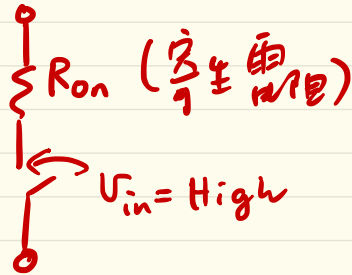 Ron (寄生電阻)
Vin = High